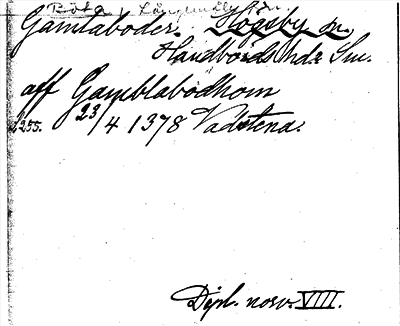 Böta, Långemåla sn.
Gamlaboder. Högsby sn.
Handbörds hd. Sm.
aff Gamblabodhom
s. 255. 23/4 1378 Vadstena.
Dipl. norv. VIII.